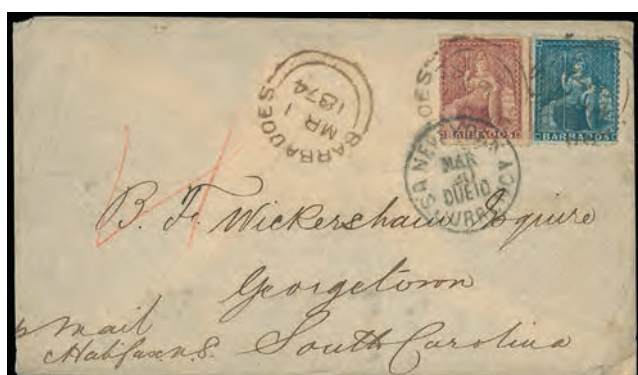 BARBADOES
MR 1
1874
BARBADOS
BARBADOS
NEW
MAR
DUE 10
B. F. Wickersham Esquire
Georgetown
South Carolina
p mail
Halifax N.S.
4